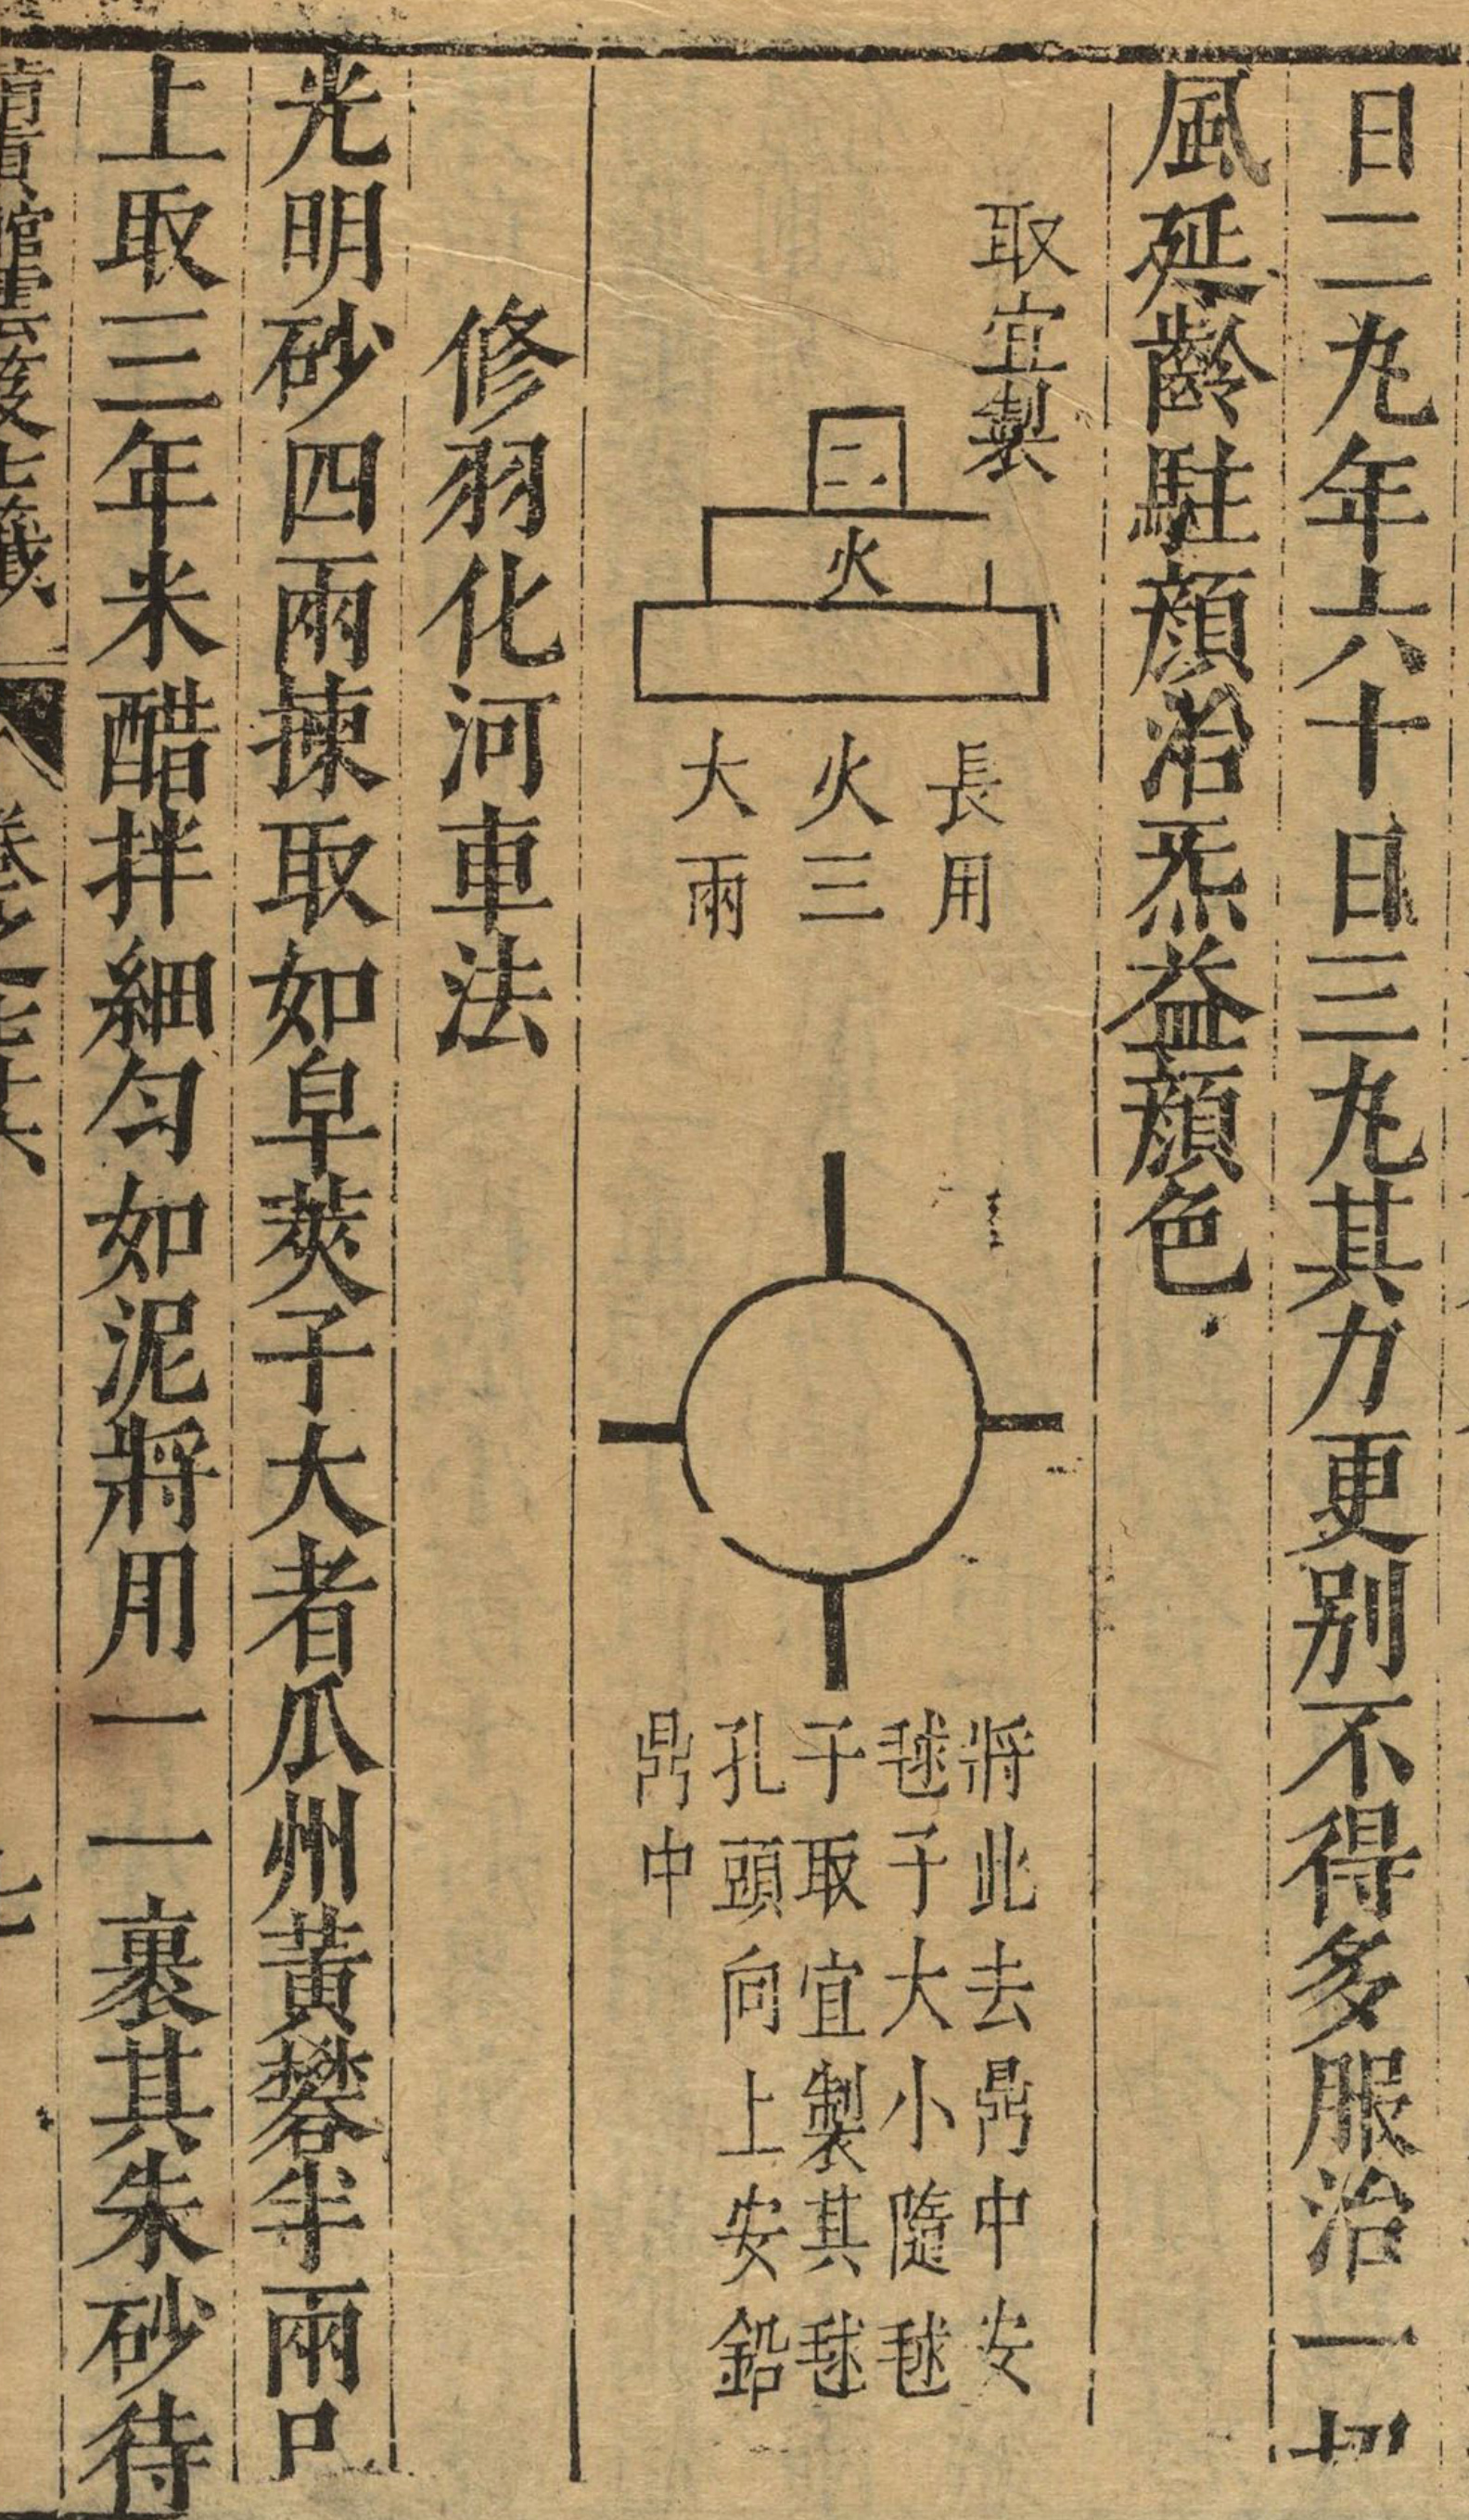 日二丸年六十日三丸其力更别不得多服治一切
風延齡駐顔治炁益顔色
取宜製
二二
火
長用
火三
大兩
將此去鼎中安
毬子大小隨毬
子取宜製其毬
孔頭向上安鉛
鼎中
修羽化河車法
光明砂四兩揀取如皁莢子大者瓜州黄礬半兩已
上取三年米醋拌細匀如泥將用一一裹其朱砂待
清眞館雲笈七籤 卷之七十六